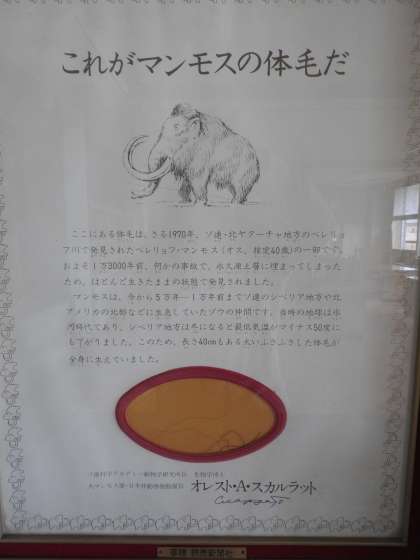 これがマンモスの体毛だ
ここにある体毛は、さる1970年、ソ連・北ヤクーチャ地方のベレリョ
フ川で発見されたベレリョフ・マンモス(オス、推定40歳)の一部です。
およそ1万3000年前、何かの事故で、永久凍土層に埋まってしまった
ため、ほとんど生きたままの状態で発見されました。
マンモスは、今から5万年〜1万年前までソ連のシベリア地方や北
アメリカの北部などに生息していたゾウの仲間です。当時の地球は氷
河時代であり、シベリア地方は冬になると最低気温がマイナス50度に
も下がりました。このため、長さ40cmもある太いふさふさした体毛が
全身に生えていました。
ソ連科学アカデミー動物学研究所長 生物学博士
大マンモス展・日本側
オレスト・A・スカルラット
寄贈 読売新聞社